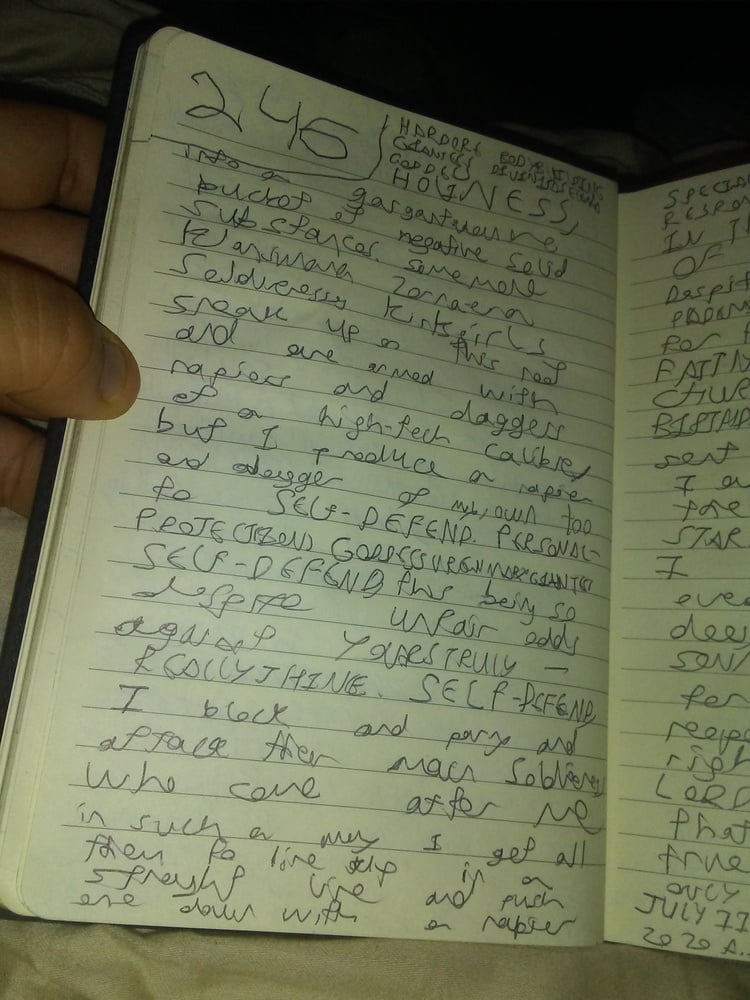 246
HARDORE BODYBUILDING
GODDESS
HOLINESS,
into a gargantuanne,
bucket of negative solid
substances. some more
Zonnaenon
Soldieresses kirksgirls
sneak up on this roof
and are armed with
rapiers and daggers
of a high-tech calibre,
but I produce a rapier
and dagger of my own too
to SELF-DEFEND. PERSONAL-
PROTECTION
SELF-DEFEND this being so
despite unfair odds
against YOURSTRULY —
REALLYTHINE. SELF-DEFEND
I block and parry and
attack them main Soldieress
who come after ME
in such a way I get all
them to line up in a
straight line and push
one down with a rapier
SPECIAL
RESPON
IN TH
OF
Despite
PARAN
for
FAITH
BIRTHD
sent
I a
STAR
I
even
deep
SON
for
respe
right
LORD
that
true
only
JULY 71
2020 A.